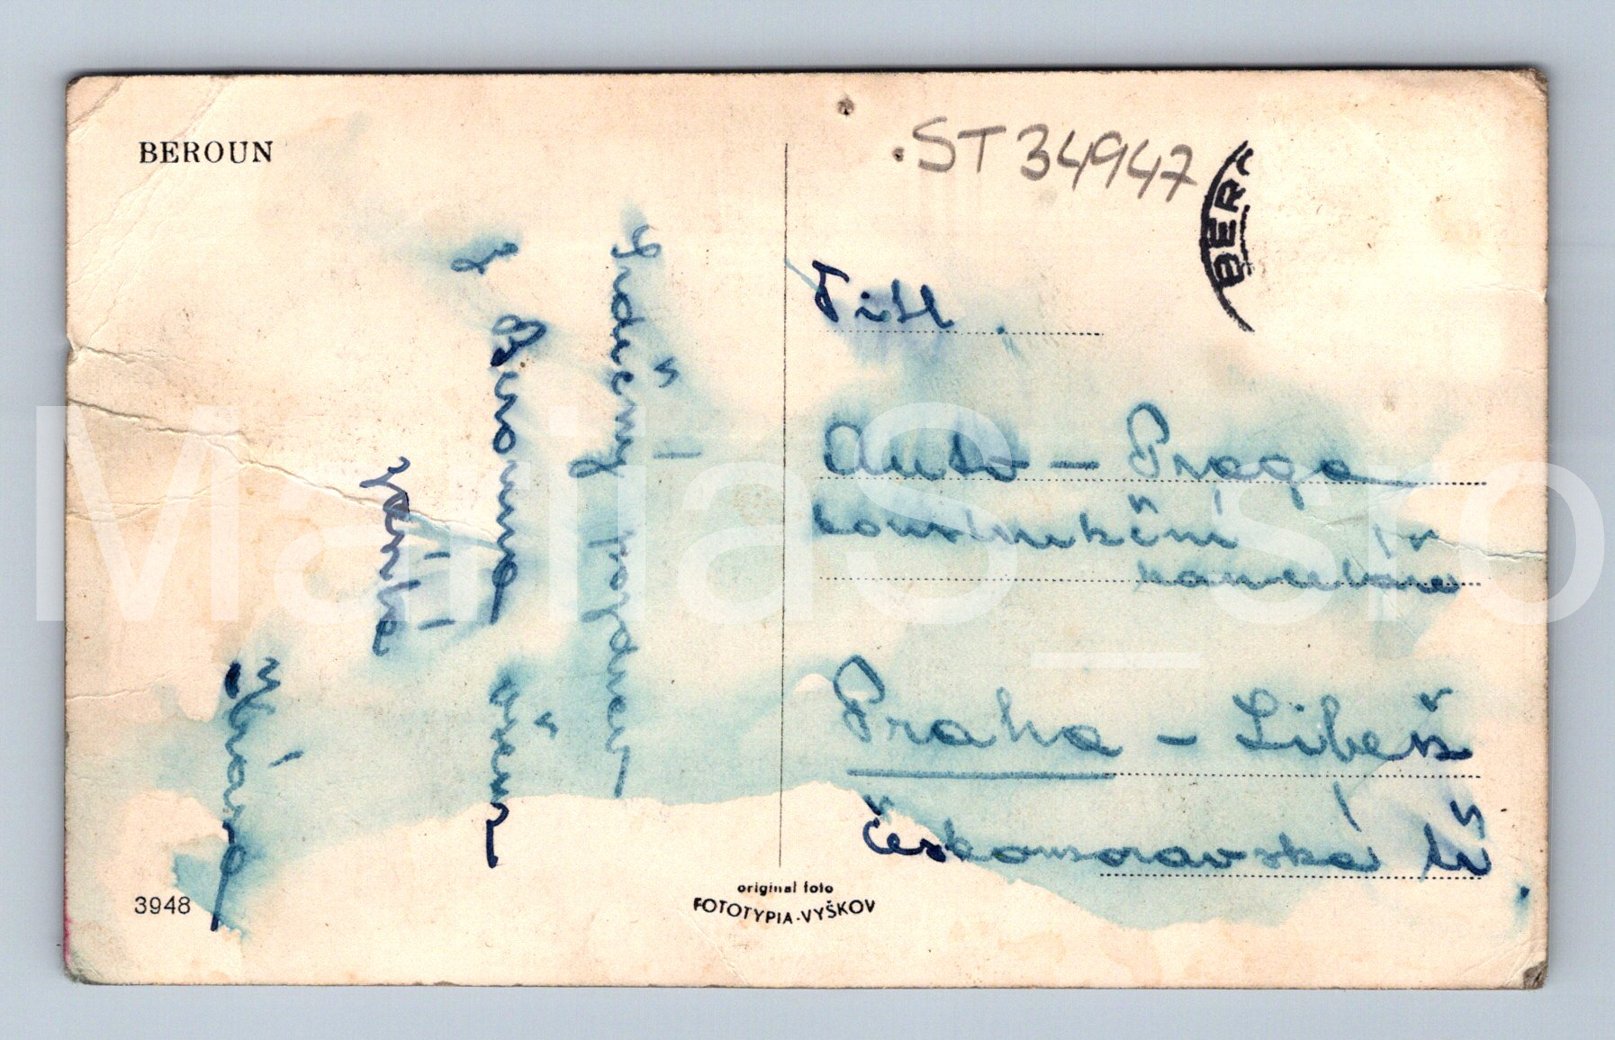 BEROUN
.ST34947
BER
Srdečný pozdrav
z Berouna všem
Jarka
Titl.
Auto - Praga
konstrukční
kancelář
Praha - Libeň
Českomoravská tř.
3948
original foto
FOTOTYPIA-VYŠKOV
MarilaS_sro